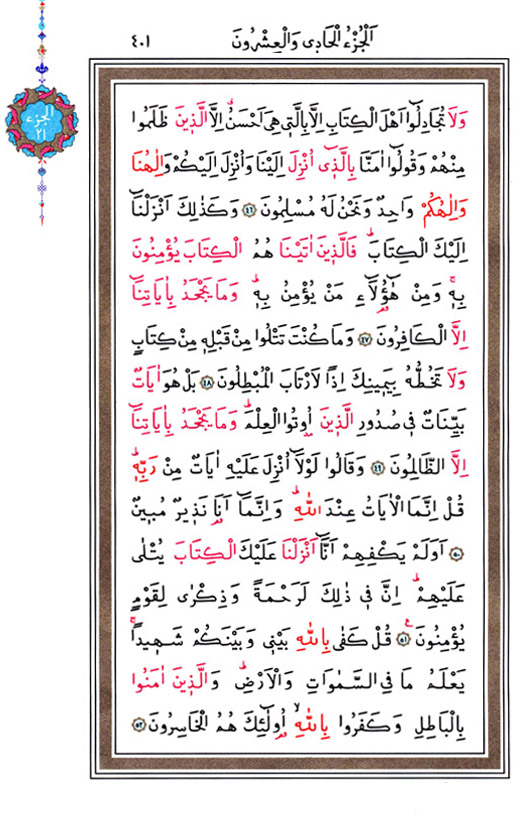 اَلْجُزْءُ الْحَادِى وَالْعِشْرُونَ
٤٠١
الجزء
٢١
وَلَا تُجَادِلُٓوا اَهْلَ الْكِتَابِ اِلَّا بِالَّتٖى هِىَ اَحْسَنُۗ اِلَّا الَّذٖينَ ظَلَمُوا
مِنْهُمْ وَقُولُٓوا اٰمَنَّا بِالَّذٖٓى اُنْزِلَ اِلَيْنَا وَاُنْزِلَ اِلَيْكُمْ وَاِلٰهُنَا
وَاِلٰهُكُمْ وَاحِدٌ وَنَحْنُ لَهُ مُسْلِمُونَ ﴿٤٦﴾ وَكَذٰلِكَ اَنْزَلْنَٓا
اِلَيْكَ الْكِتَابَۜ فَالَّذٖينَ اٰتَيْنَا هُمُ الْكِتَابَ يُؤْمِنُونَ
بِهٖۚ وَمِنْ هٰٓؤُ۬لَٓاءِ مَنْ يُؤْمِنُ بِهٖۜ وَمَا يَجْحَدُ بِاٰيَاتِنَٓا
اِلَّا الْكَافِرُونَ ﴿٤٧﴾ وَمَا كُنْتَ تَتْلُوا مِنْ قَبْلِهٖ مِنْ كِتَابٍ
وَلَا تَخُطُّهُ بِيَمٖينِكَ اِذًا لَارْتَابَ الْمُبْطِلُونَ ﴿٤٨﴾ بَلْ هُوَ اٰيَاتٌ
بَيِّنَاتٌ فٖى صُدُورِ الَّذٖينَ اُو۫تُوا الْعِلْمَۜ وَمَا يَجْحَدُ بِاٰيَاتِنَٓا
اِلَّا الظَّالِمُونَ ﴿٤٩﴾ وَقَالُوا لَوْلَٓا اُنْزِلَ عَلَيْهِ اٰيَاتٌ مِنْ رَبِّهٖۜ
قُلْ اِنَّمَا الْاٰيَاتُ عِنْدَ اللّٰهِۜ وَاِنَّمَٓا اَنَا۬ نَذٖيرٌ مُبٖينٌ
﴿٥٠﴾ اَوَلَمْ يَكْفِهِمْ اَنَّٓا اَنْزَلْنَا عَلَيْكَ الْكِتَابَ يُتْلٰى
عَلَيْهِمْۜ اِنَّ فٖى ذٰلِكَ لَرَحْمَةً وَذِكْرٰى لِقَوْمٍ
يُؤْمِنُونَ۟ ﴿٥١﴾ قُلْ كَفٰى بِاللّٰهِ بَيْنٖى وَبَيْنَكُمْ شَهٖيدًاۚ
يَعْلَمُ مَا فِى السَّمٰوَاتِ وَالْاَرْضِۜ وَالَّذٖينَ اٰمَنُوا
بِالْبَاطِلِ وَكَفَرُوا بِاللّٰهِۙ اُو۬لٰٓئِكَ هُمُ الْخَاسِرُونَ ﴿٥٢﴾